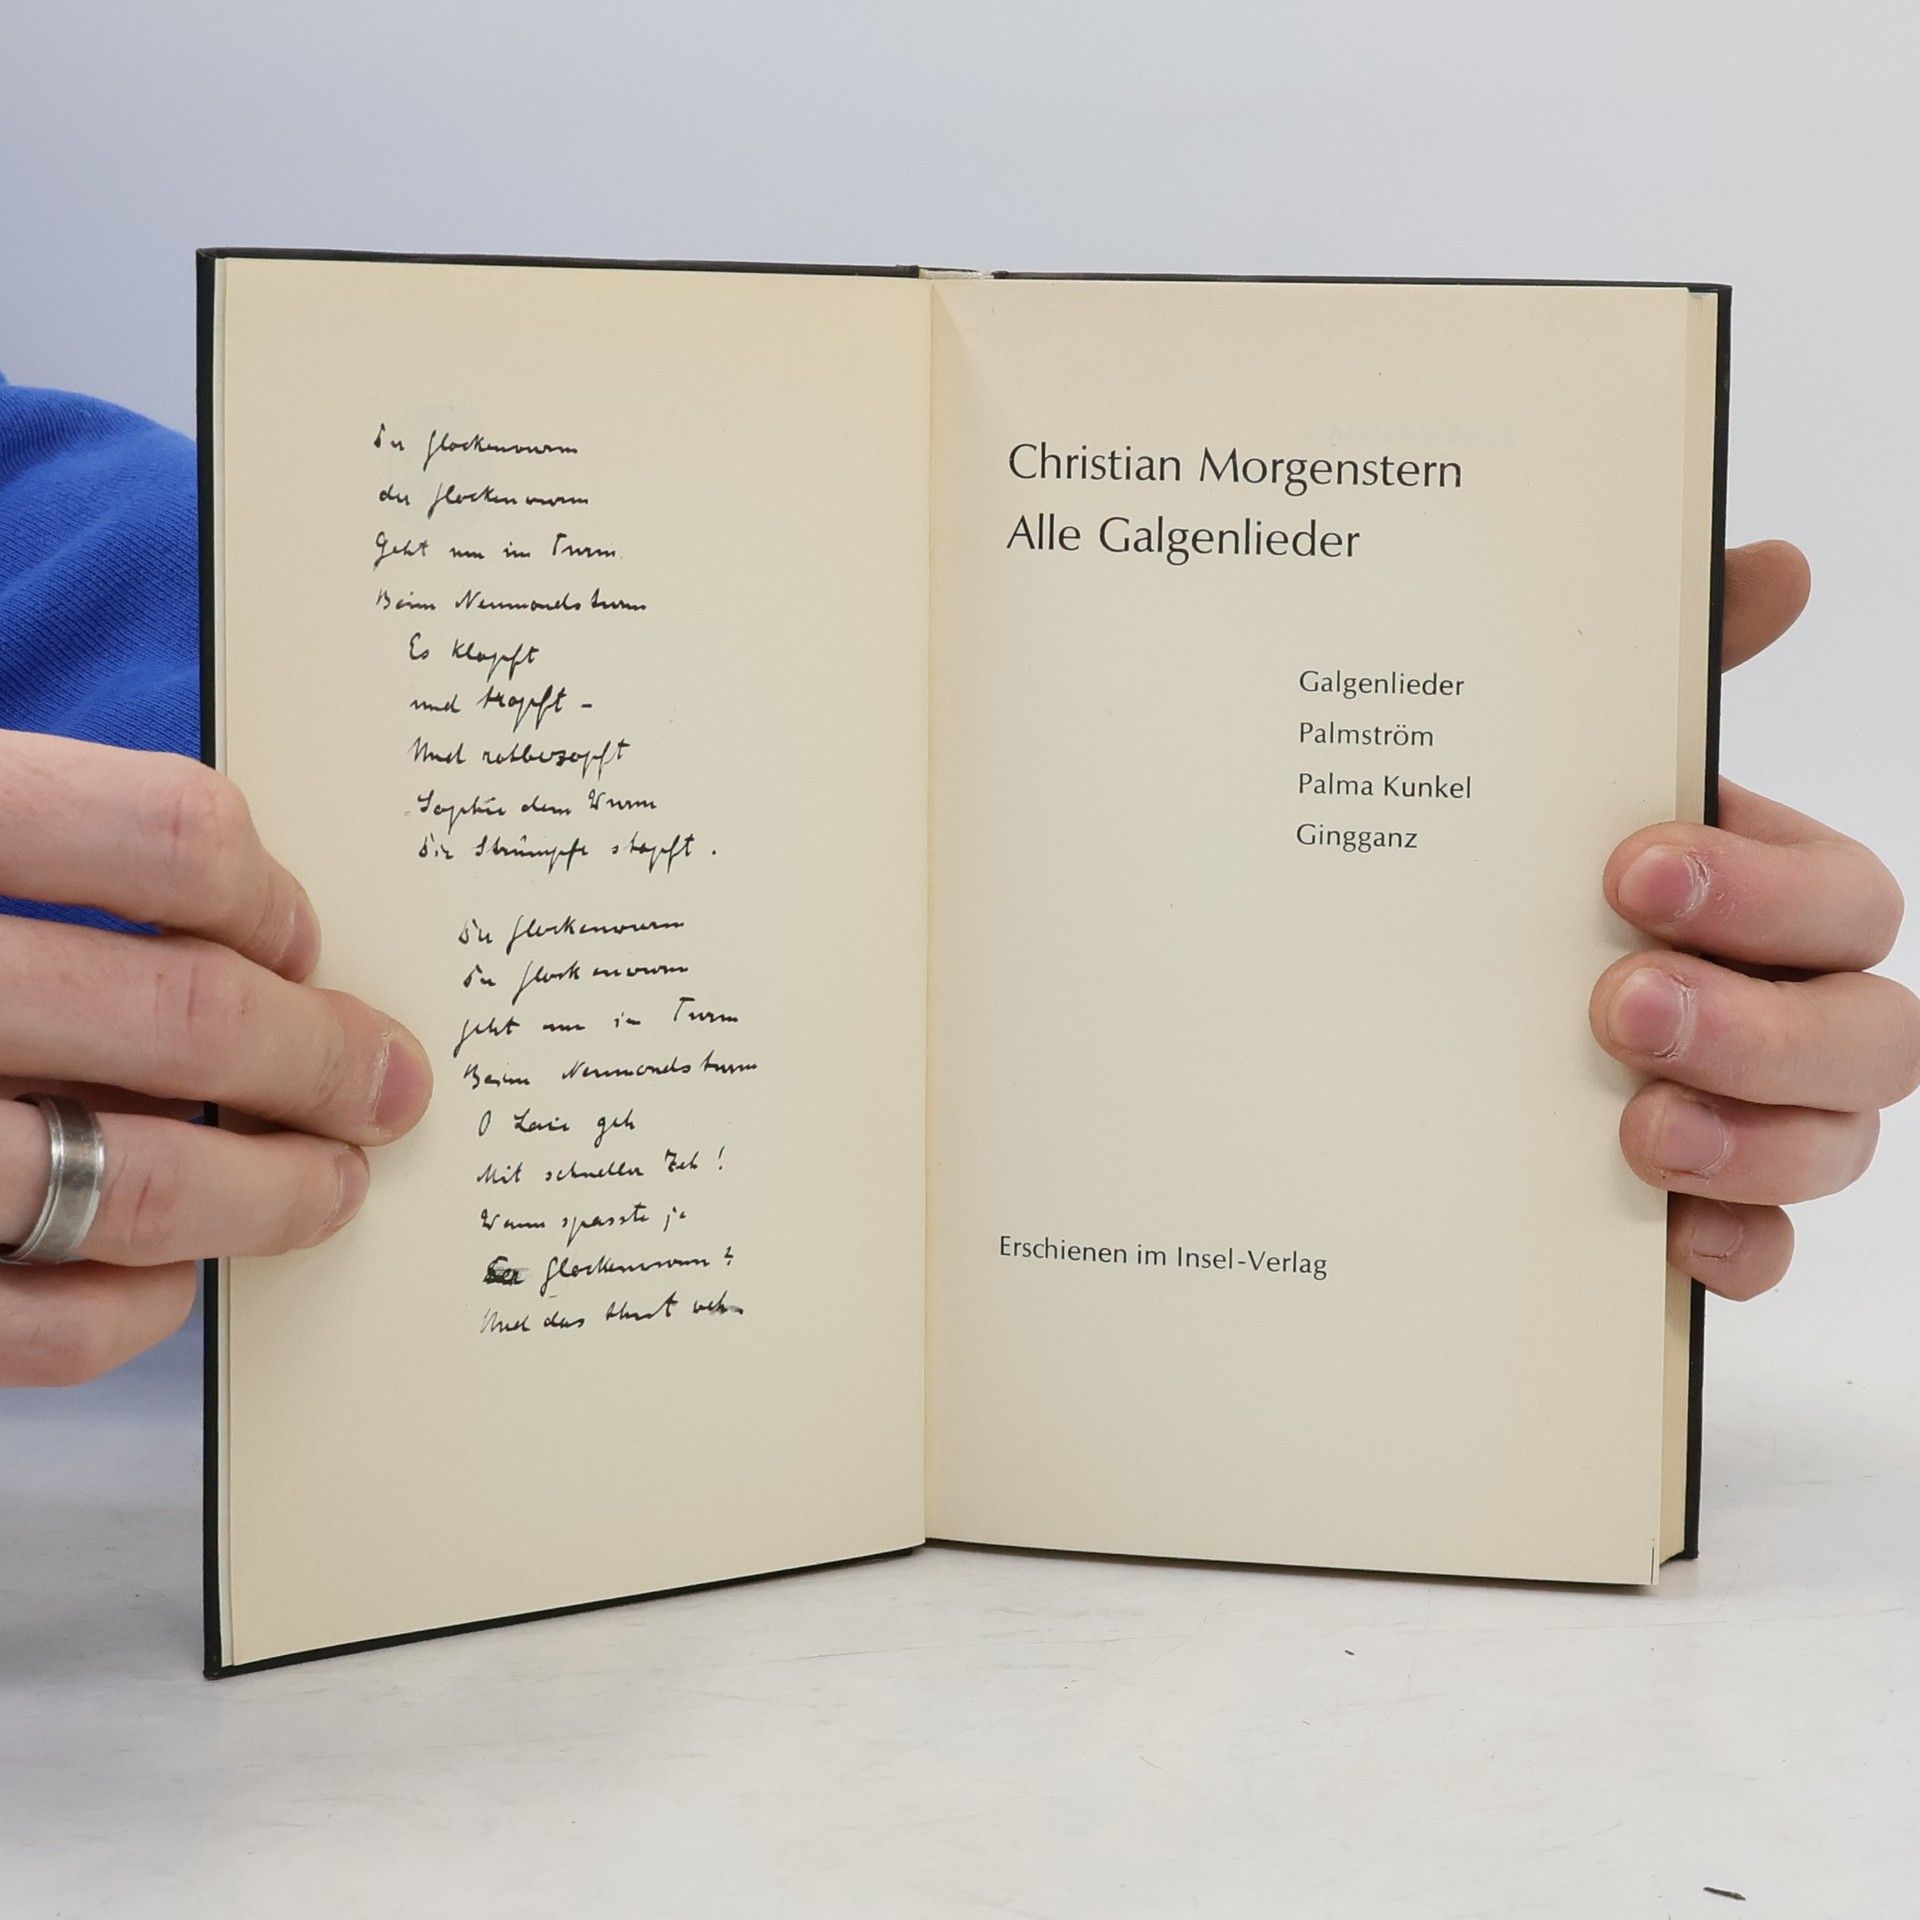 Der Glockenwurm
der Glockenwurm
Geht um im Turm.
Beim Neumondsturm
Es klopft
und tropft –
Und rotbezopft
Sophie dem Wurm
Die Strümpfe stopft.
Der Glockenwurm
Der Glockenwurm
geht um im Turm
Beim Neumondsturm
O Laie geh
Mit schneller Zeh!
Wann spasste je
Der Glockenwurm?
Und das thut weh
Christian Morgenstern
Alle Galgenlieder
Galgenlieder
Palmström
Palma Kunkel
Gingganz
Erschienen im Insel-Verlag